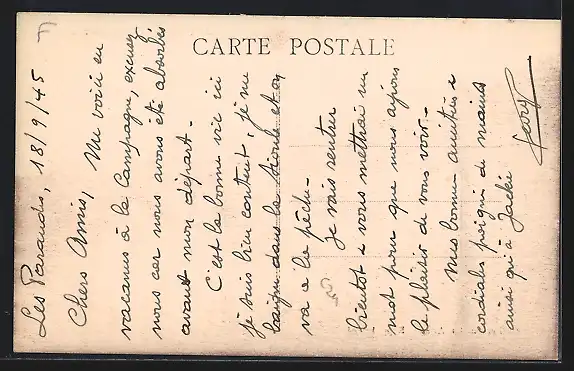 CARTE POSTALE
Les Paraudis, 18/9/45
Chers Amis, Me voici en
vacances à la Campagne, excusez
nous car nous avons été absorbés
avant mon départ.
C'est la bonne vie ici
je suis bien content, je me
baigne dans la Sioule et on
va à la pêche.
Je vais rentrer
bientôt & vous mettrai un
mot pour que nous ayions
le plaisir de vous voir.
Mes bonnes amitiés &
cordiales poignées de mains
ainsi qu'à Jacké